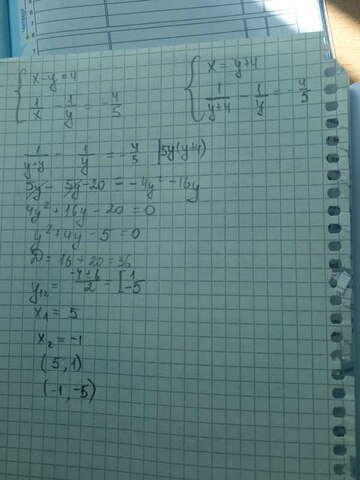 { x-y=4
1/x - 1/y = -4/5
{ x = y+4
1/(y+4) - 1/y = -4/5
1/(y+4) - 1/y = -4/5 | 5y(y+4)
5y - 5y - 20 = -4y² - 16y
4y² + 16y - 20 = 0
y² + 4y - 5 = 0
D = 16 + 20 = 36
y₁,₂ = (-4±6)/2 = [1 -5
x₁ = 5
x₂ = -1
(5, 1)
(-1, -5)